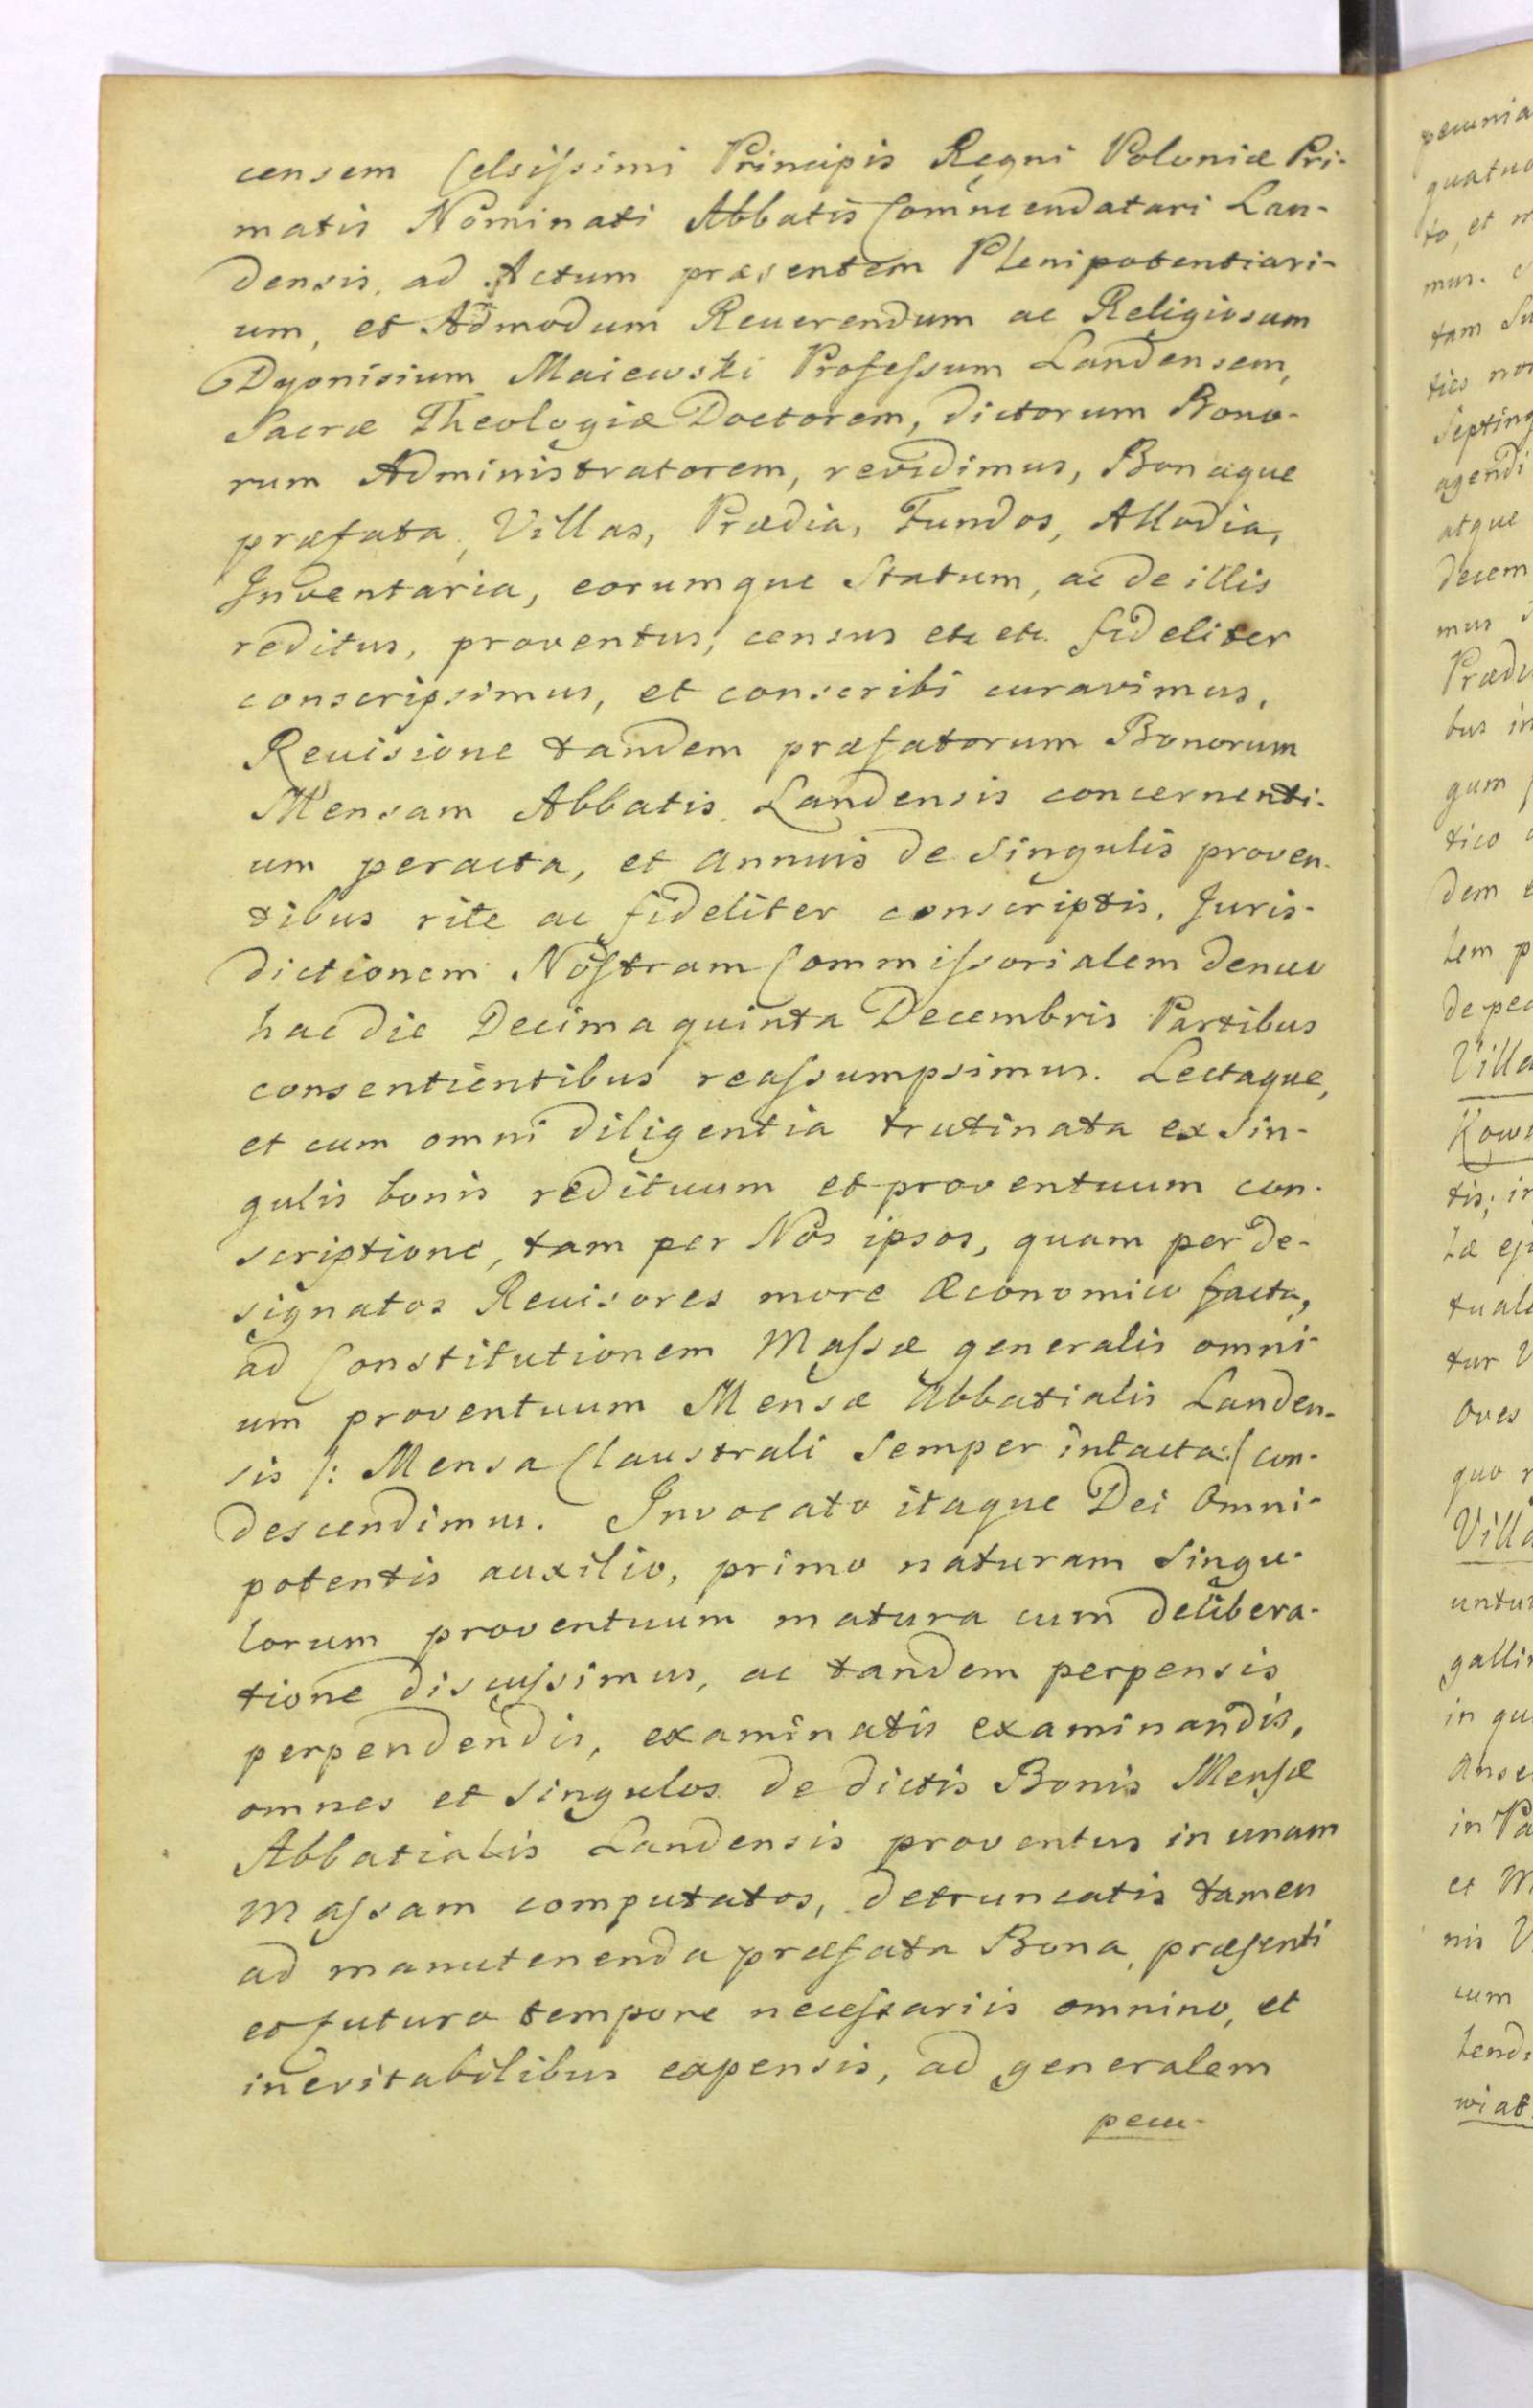 censem Celsissimi Principis Regni Poloniæ Pri-
matis Nominati Abbatis Commendatari Lan-
densis, ad Actum præsentem Plenipotentiari-
um, et Admodum Reuerendum ac Religiosum
Dyonisium Maiewski Professum Landensem,
Sacræ Theologiæ Doctorem, dictorum Bono-
rum Administratorem, revidimus, Bonaque
præfata, Villas, Prædia, Fundos, Allodia,
Inventaria, eorumque Statum, ac de illis
reditus, proventus, census etc etc. fideliter
conscripsimus, et conscribi curavimus.
Reuisione tandem præfatorum Bonorum
Mensam Abbatis Landensis concernenti-
um peracta, et annuis de singulis proven-
tibus rite ac fideliter conscriptis, Juris-
dictionem Nostram Commissorialem denuo
hac die Decima quinta Decembris Partibus
consentientibus reassumpsimus. Lectaque,
et cum omni diligentia trutinata ex sin-
gulis bonis redituum et proventuum con-
scriptione, tam per Nos ipsos, quam per de-
signatos Reuisores more Œconomico facta,
ad Constitutionem Massæ generalis omni-
um proventuum Mensæ Abbatialis Landen-
sis /: Mensa Claustrali semper intacta :/ con-
descendimus. Invocato itaque Dei Omni-
potentis auxilio, primo naturam singu-
lorum proventuum matura cum delibera-
tione discussimus, ac tandem perpensis
perpendendis, examinatis examinandis,
omnes et singulos de dictis Bonis Mensæ
Abbatialis Landensis proventus in unam
Massam computatos, detruncatis tamen
ad manutenenda præfata Bona, præsenti
et futuro tempore necessariis omnino, et
inevitabilibus expensis, ad generalem
pecu-
pecunia
to, et
mus.
tam
ties
agendi
atque
decem
mus
bus
gum
tico
dem
tem
Villa
untur
in
et
cum